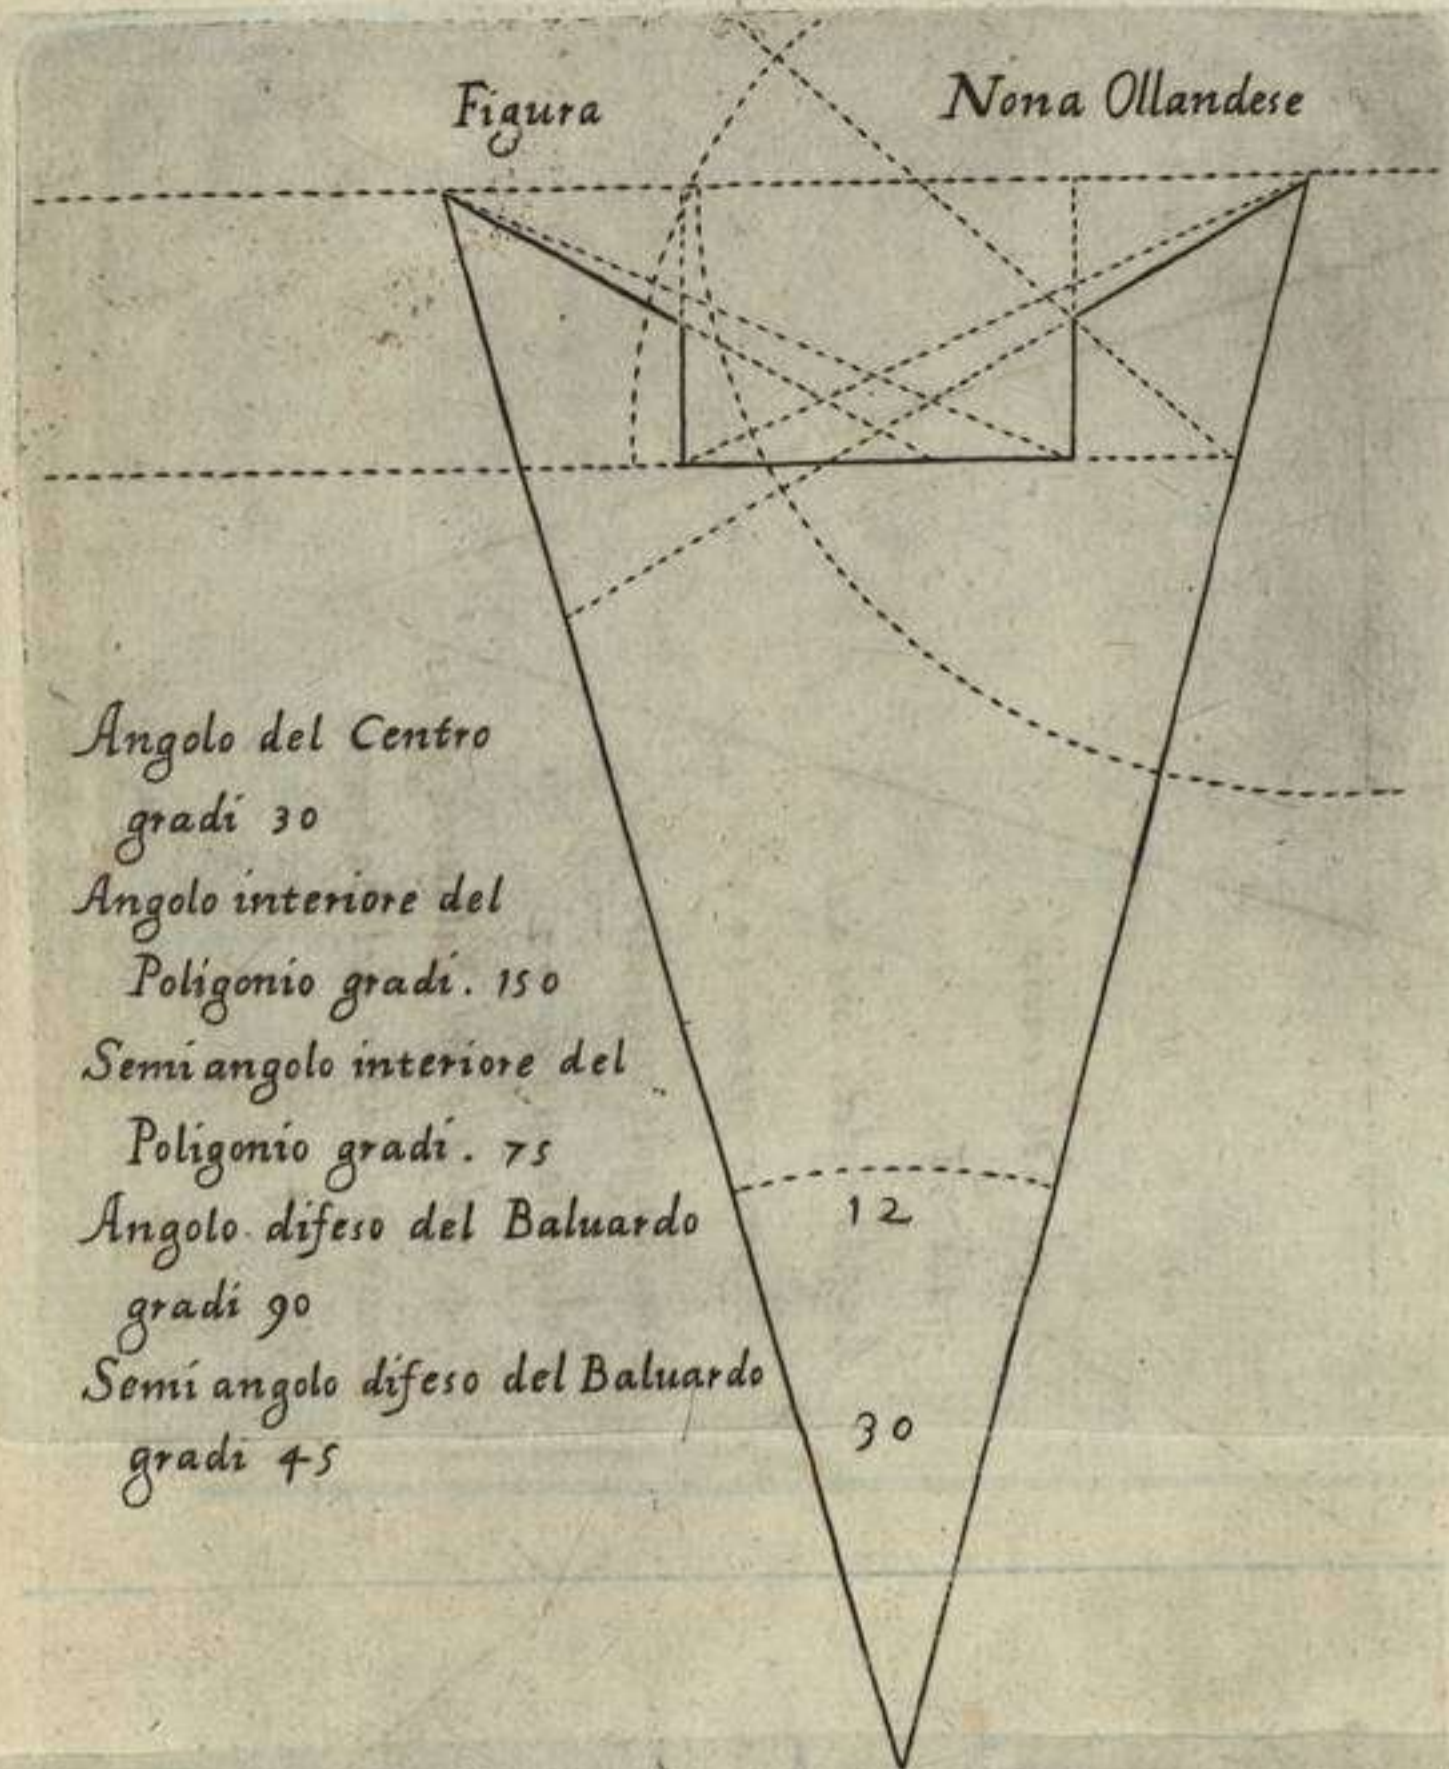 Figura Nona Ollandese
Angolo del Centro
gradi 30
Angolo interiore del
Poligonio gradi. 150
Semi angolo interiore del
Poligonio gradi. 75
Angolo difeso del Baluardo
gradi 90
Semi angolo difeso del Baluardo
gradi 45
12
30